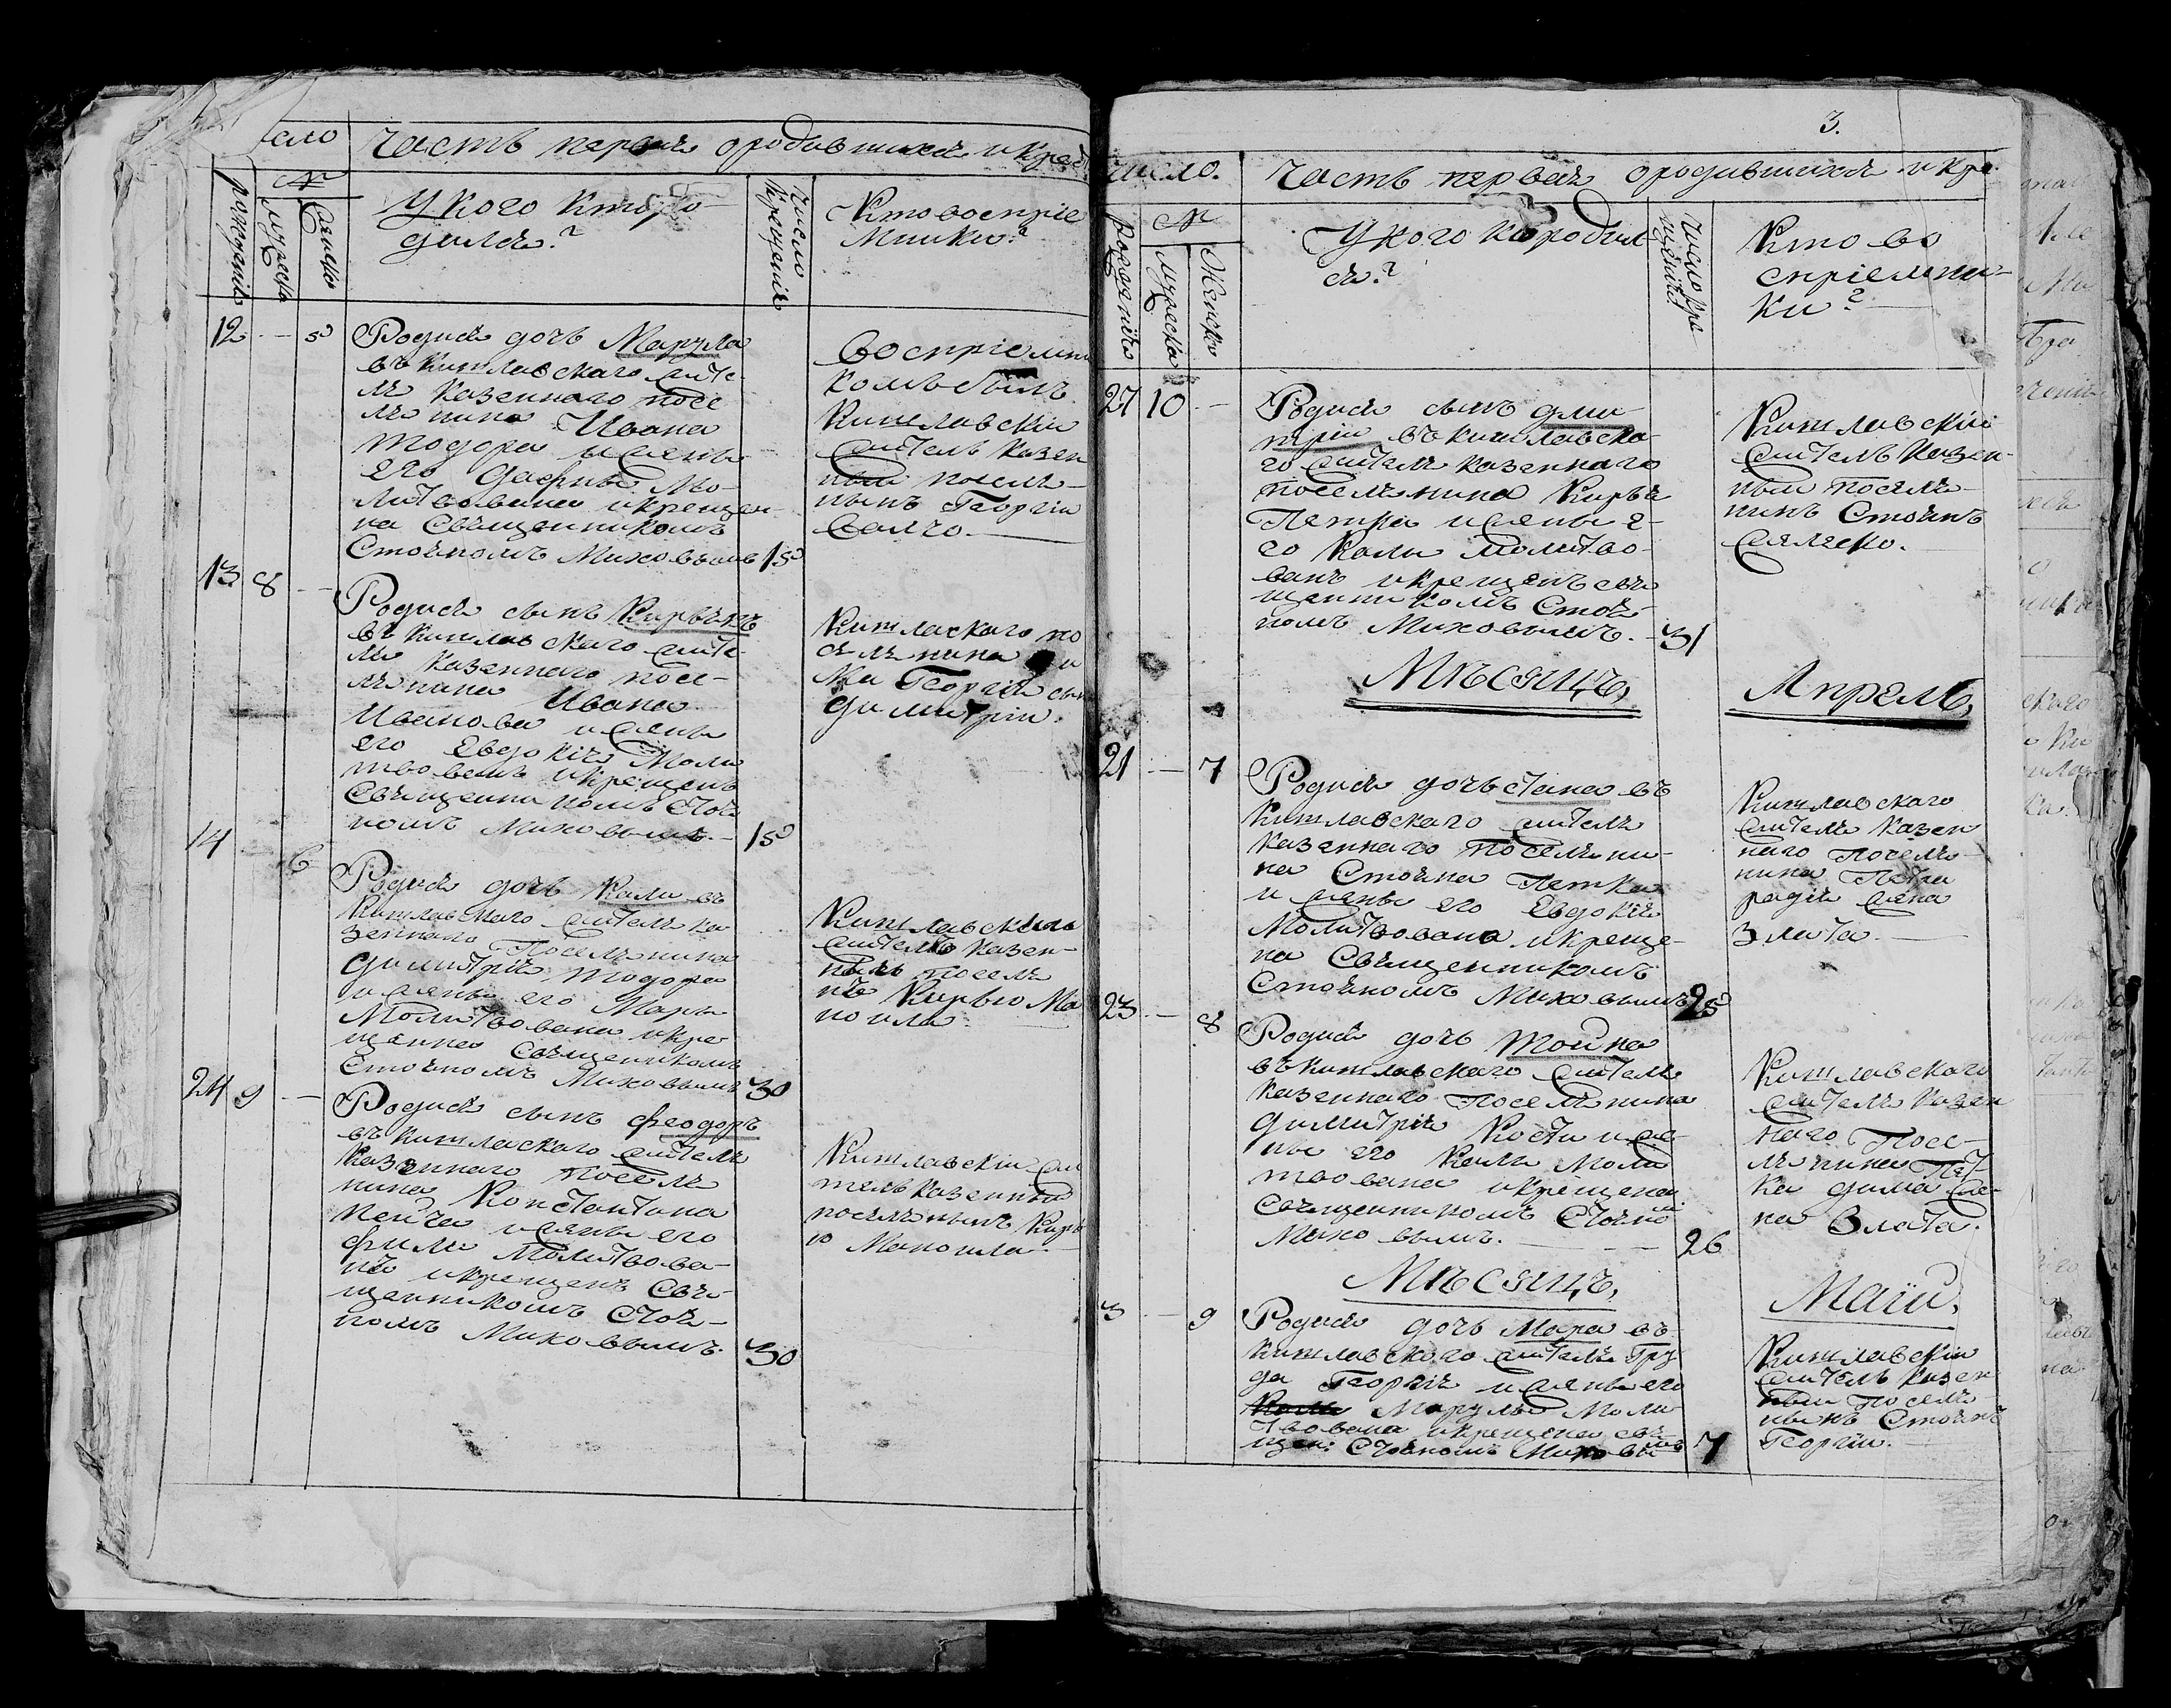 сло Часть первая ородившихся и Крес
рождения № мужеска женска
У Кого Кто ро
дился?
Число Крещения
Кто воспріе
мники?
12 - 5 Родися дочь Марула
въ Кишлавскаго жите
ля Казеннаго посе
лянина Ивана
Тодора и жены
его Дафины Мо-
литвована и крещен-
на Священникомъ
Стояномъ Миховымъ 15
Восприемни
комъ былъ
Кишлавскіи
житель казен
ныи поселя-
нынъ Георгіи
Велчо.
13 8 - Родися сынъ Кирьякъ
въ Кишлавскаго жите-
ля Казеннаго посе-
лянина Ивана
Иванова и жены
его Евдокія Моли
твованъ и крещенъ
Священникомъ Стоя
номъ Миховымъ. 15
Кишлаского по
селянина
Георгія сын
Димитріи.
14 - 6 Родися дочь Кали въ
Кишлавскаго жителя ка
зеннаго Поселянина
Димитрія Тодора
и жены его Мары
Молитвована и кре
щенна Священникомъ
Стояномъ Миховымъ 30
Кишлавскіи
житель казен-
ныи поселя
нъ Кирьо Ма
ноила
24 9 - Родися сынъ Феодоръ
въ Кишлаского жителя
Казеннаго Поселя
нина Константина
Пейча и жены его
Молитвова-
нъ и крещенъ Свя-
щенникомъ Стоя-
номъ Миховымъ. 30
Кишлавскіи жи
тель казенныи
поселянынъ Кирь
о Маноила
3.
число. Часть первая ородившихся и кре.
рождения № мужеска Женска
У Кого Кородил
ся?
Число кре
щения
Кто во
спріемни-
ки?
27 10 - Родися сынъ Дми-
тріи въ Кишлавска-
го жителя казеннаго
поселянина Кирья
Петкa и жены е-
го Калы молитво-
ванъ и крещенъ свя
щенникомъ Стоя-
номъ Миховымъ. 31
Кишлавскіи
житель Казен-
ныи поселя-
нинъ Стоянъ
Желязко.
Мѣсяцъ, Апрель,
21 - 7 Родися дочь Стана въ
Кишлавскаго жителя
Казеннаго Поселяни-
на Стояна Петка
и жены его Евдокія
Молитвована и креще-
на Священникомъ
Стояномъ Миховымъ 25
Кишлавскаго
жителя Казен
наго Поселя-
нина Петра
радія жена
Злата.
23 - 8 Родися дочь Тойна
въ Кишлавскаго жителя
Казеннаго Поселянина
Димитрія Кости и же-
ны его Калы Моли
твована и крещена
Священникомъ Стояно
Миховымъ. 26
Кишлавскаго
жителя казен
наго Посе-
лянина Пет-
ка Дима же-
на Злата.
Мѣсяцъ, Маіи.
3 - 9 Родися дочь Мара въ
Кишлавскаго жителя Гру
да Георгія и жены его
Марулы Моли
твована и крещена свя
щен: Стояномъ Миховымъ 7
Кишлавскіи
житель казен
ныи Поселя
нынъ Стоянъ
Георгіи.